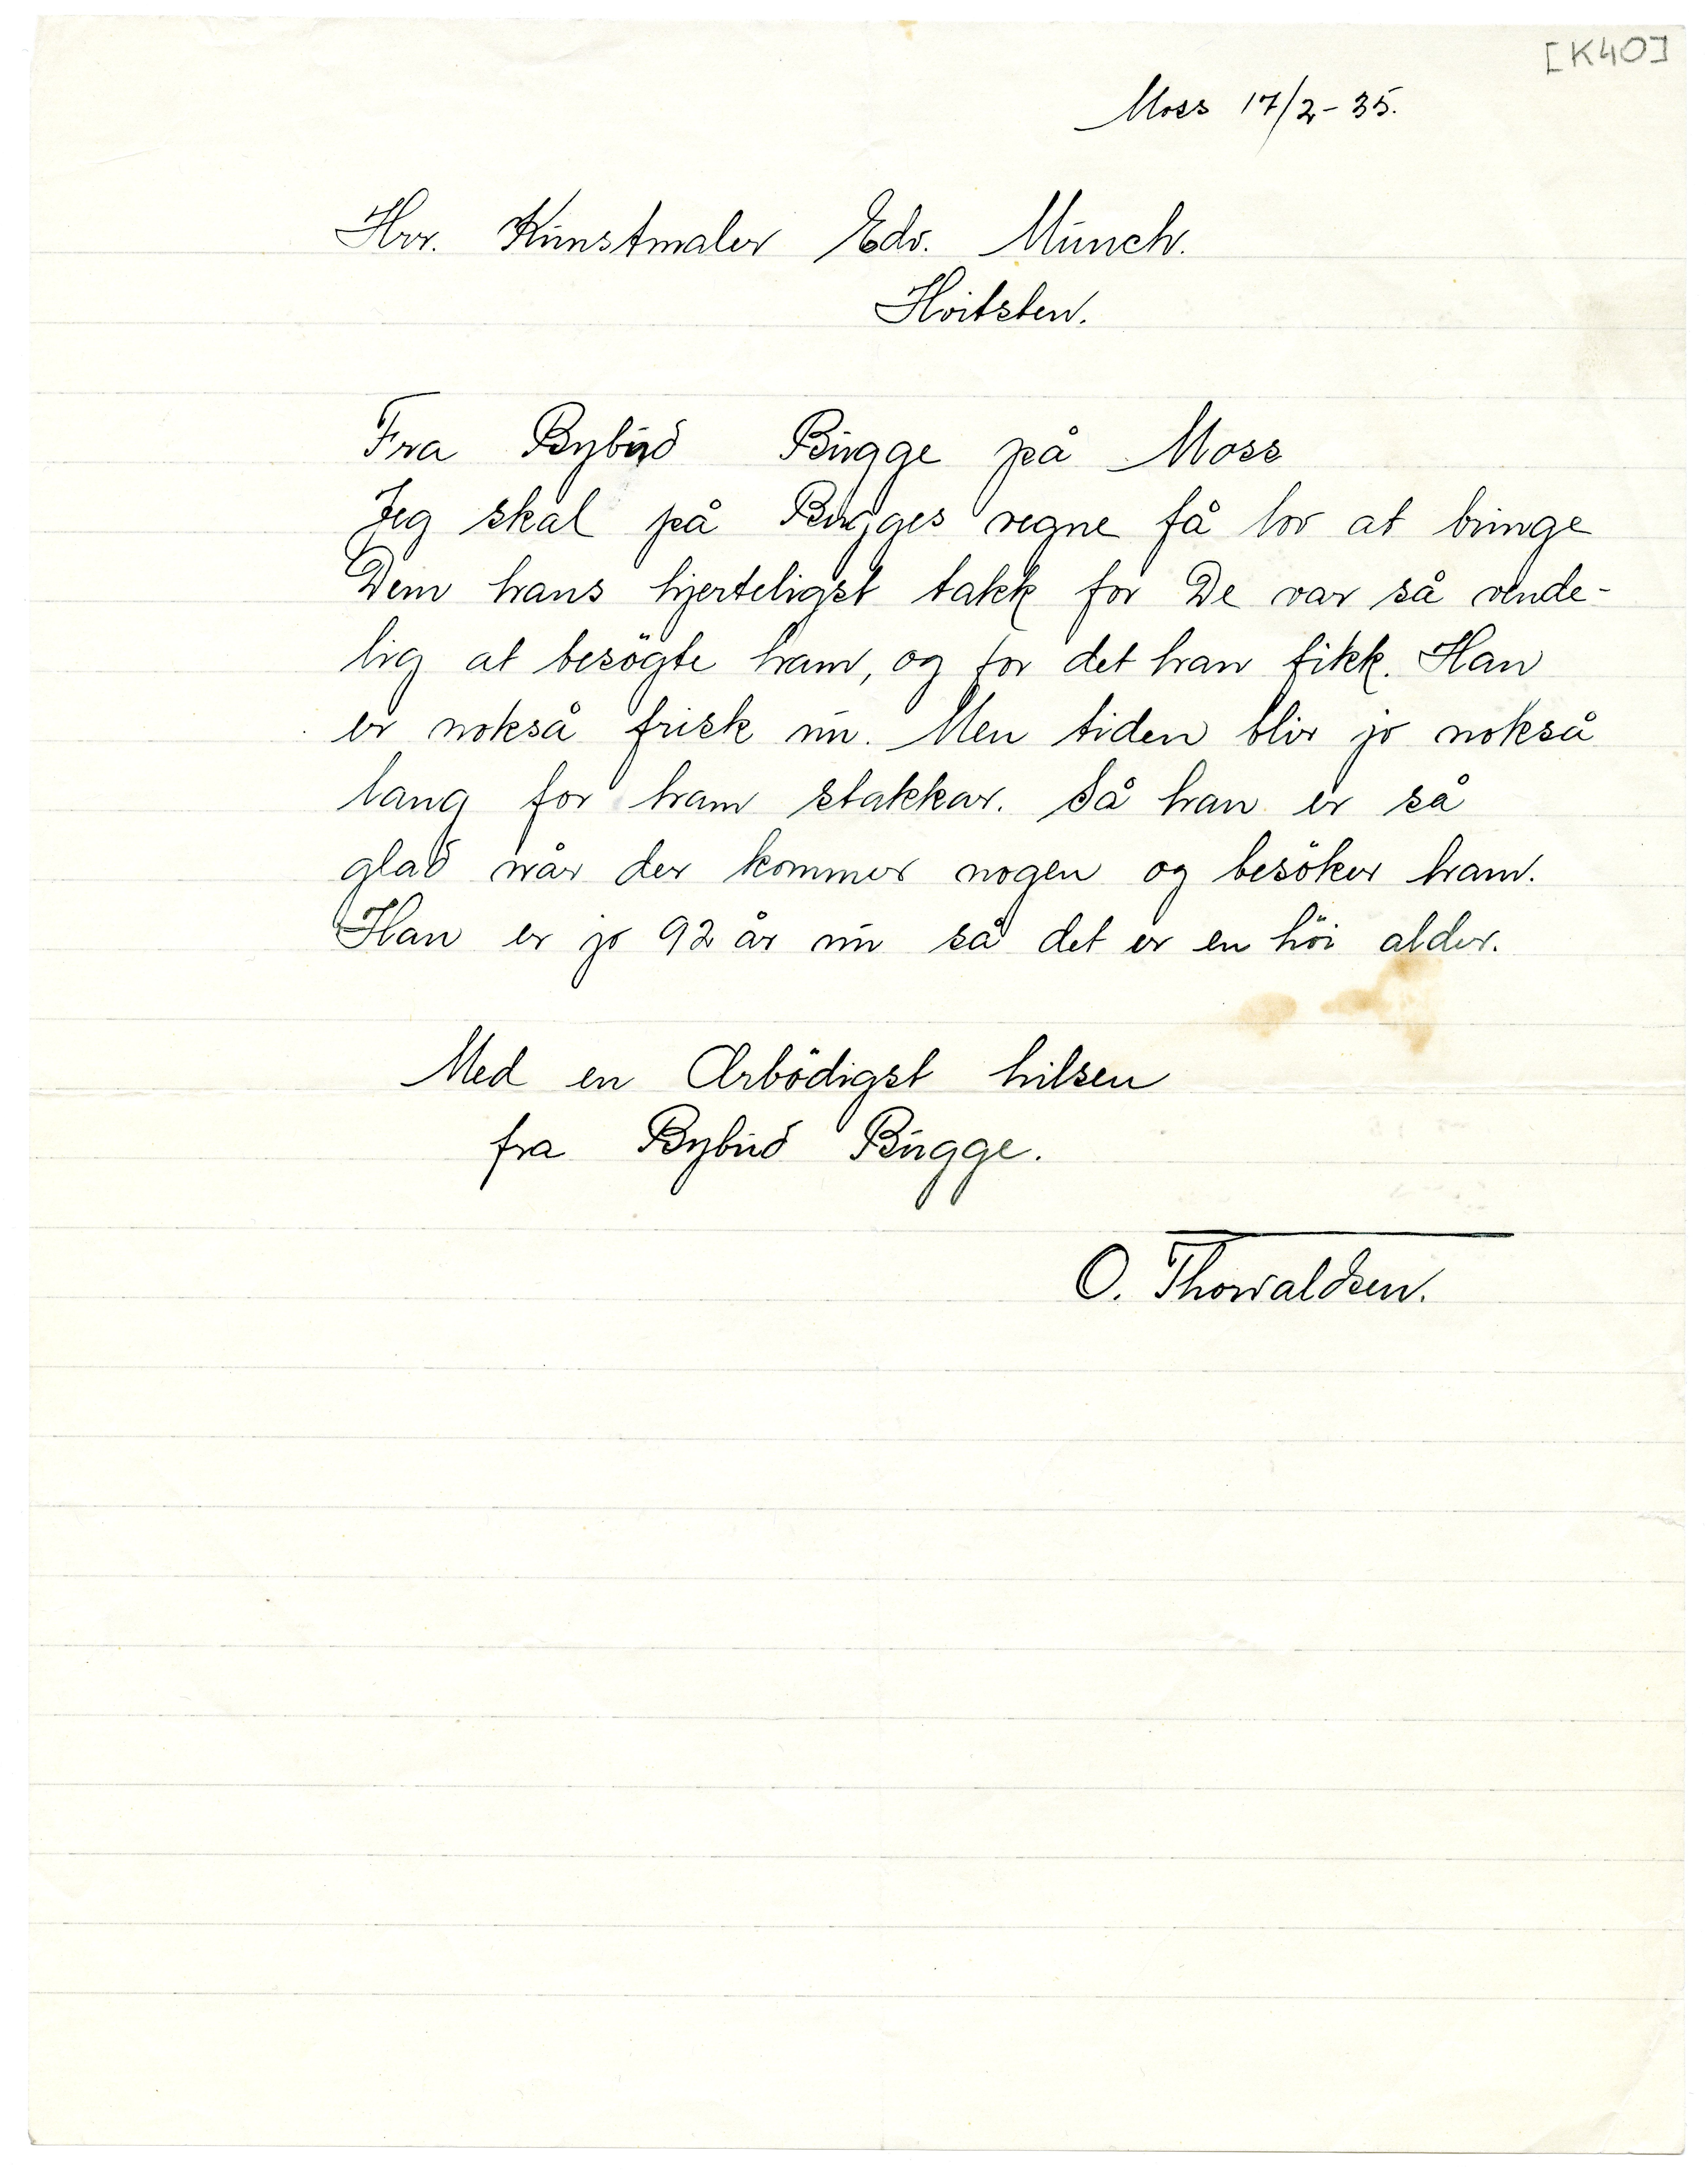 [K40]
Moss 17/2-35.
Hrr. Kunstmaler Edv. Munch.
Hvitsten.
Fra Bybud Bugge på Moss
Jeg skal på Bugges vegne få lov at bringe
Dem hans hjerteligst takk for De var så vende-
lig at besögte ham, og for det han fikk. Han
er nokså frisk nu. Men tiden blir jo nokså
lang for ham stakkar. Så han er så
glad når der kommer nogen og besöker ham.
Han er jo 92 år nu så det er en höi alder.
Med en Ærbödigst hilsen
fra Bybud Bugge.
O. Thorvaldsen.